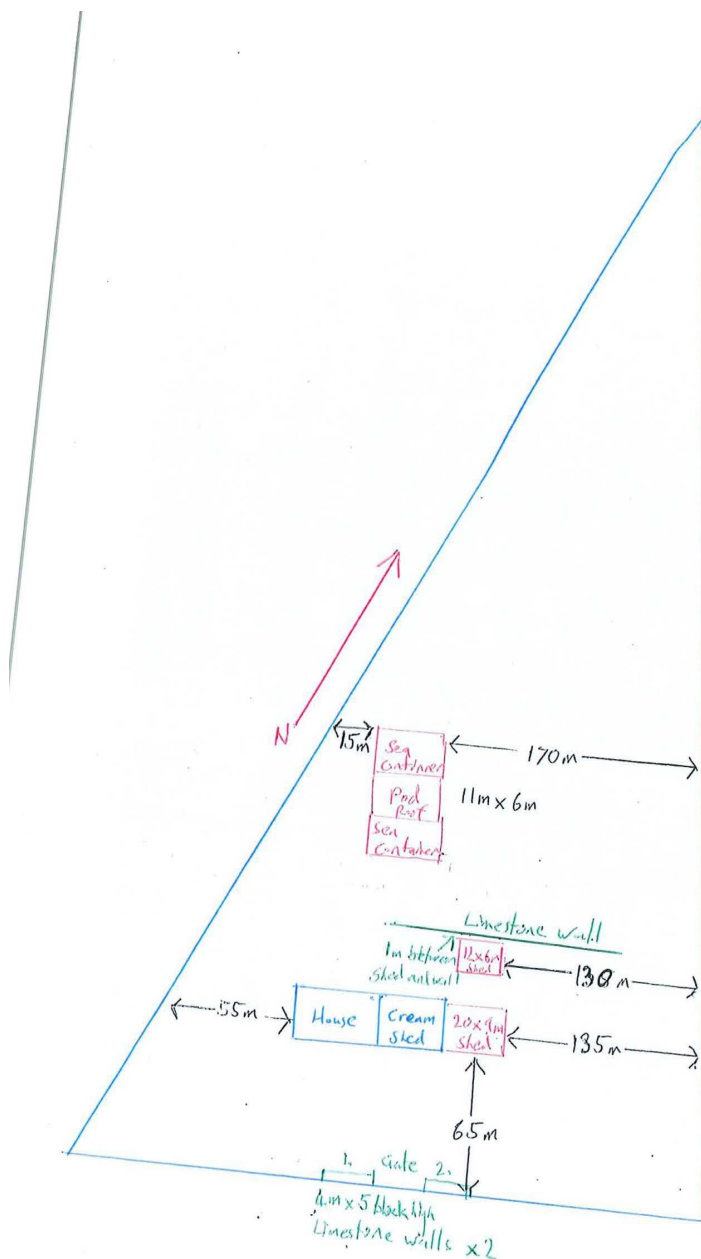 N
15m
Sea
Container
170m
Pod
Roof
11m x 6m
Sea
Container
Limestone wall
1m between
shed and wall
12x6m
shed
130m
55m
House
Cream
shed
20x9m
shed
135m
65m
1. Gate 2.
4m x 5 block high
Limestone walls x2